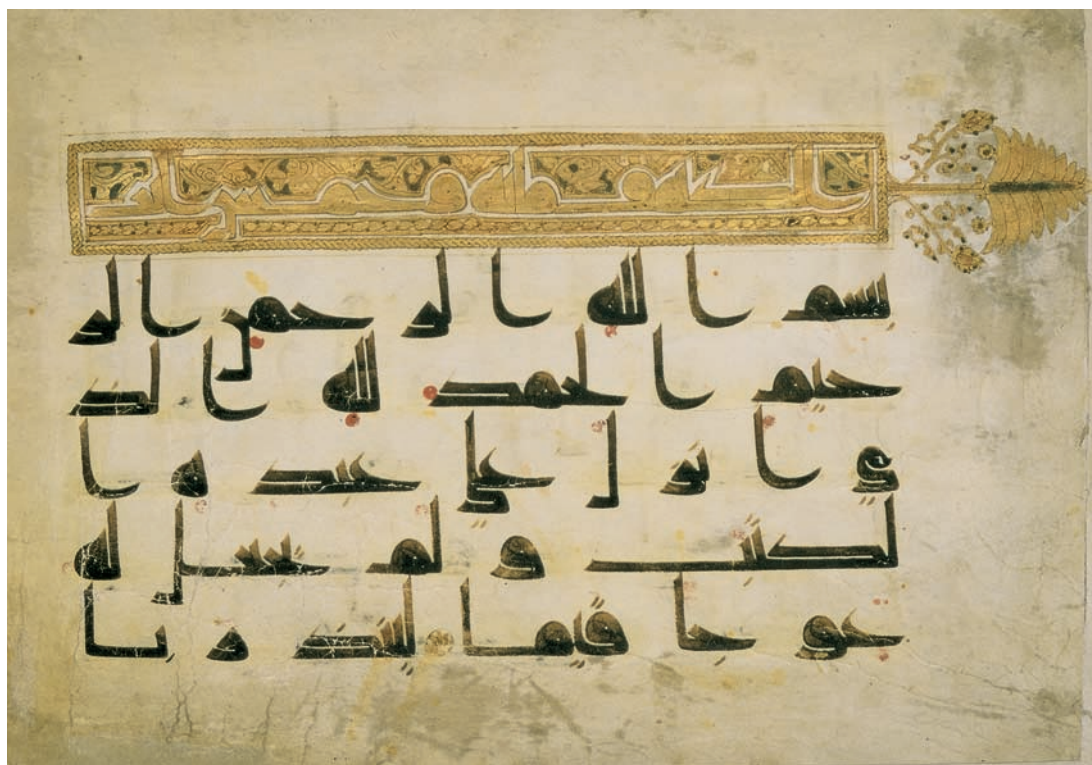 الكهف مائة وخمس ايات
بسم الله الرحمن الر
حيم الحمد لله الذ
ي انزل على عبده ا
لكتب ولم يجعل له
عوجا قيما لينذر با